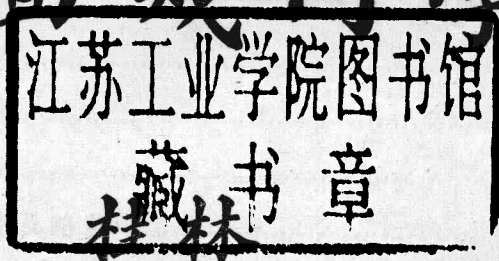 江苏工业学院图书馆
藏书章
桂林